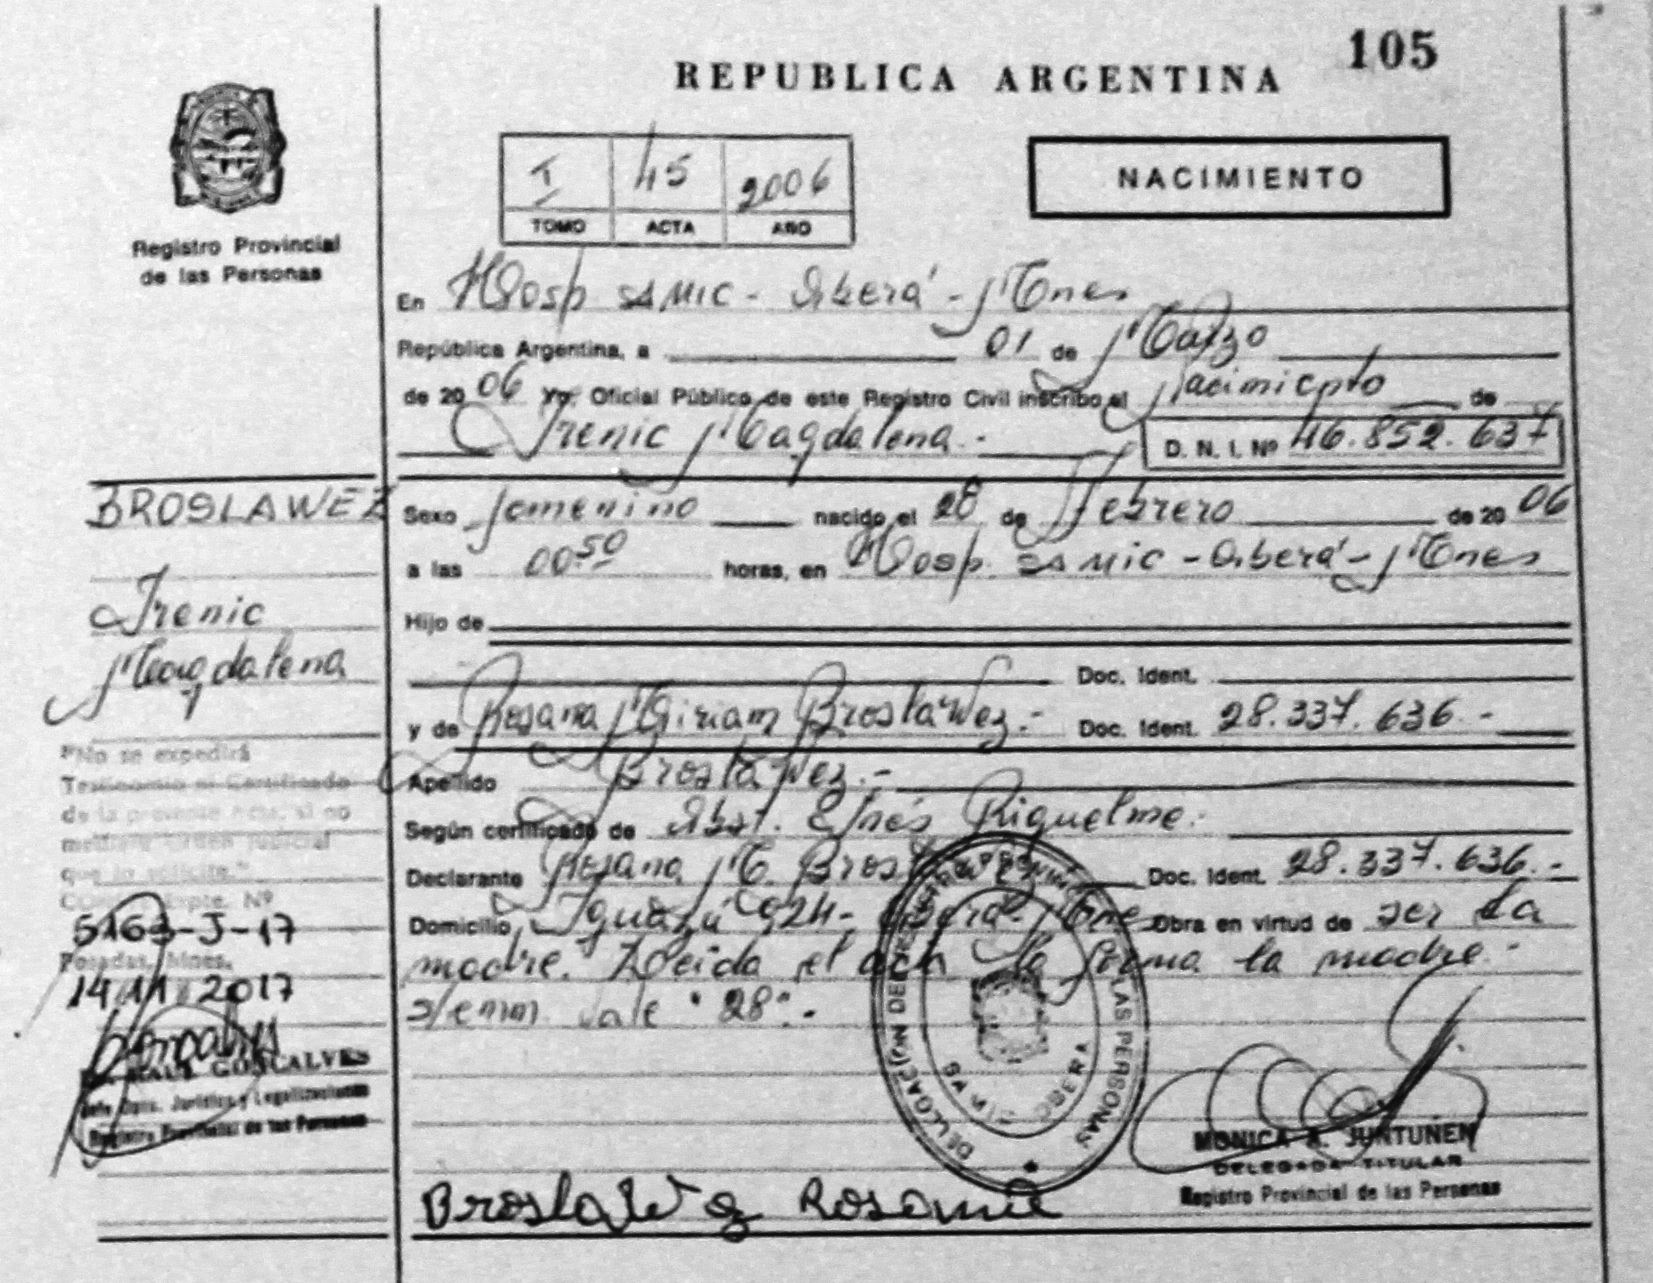 105
REPUBLICA ARGENTINA
Registro Provincial
de las Personas
I 45 2006
TOMO ACTA AÑO
NACIMIENTO
En Hosp SAMIC - Oberá - Mnes
República Argentina, a 01 de Marzo
de 2006 Yo, Oficial Público de este Registro Civil inscribo el Nacimiento de
Irenic Magdalena.- D. N. I. Nº 46.852.637
BROSLAWEZ
Irenic
Magdalena
Sexo femenino nacido el 28 de Febrero de 2006
a las 00 50 horas, en Hosp. SAMIC - Oberá - Mnes
Hijo de
Doc. Ident.
y de Rosana Miriam Broslawez.- Doc. Ident. 28.337.636.-
Apellido Broslawez.-
Según certificado de Obst. Inés Riquelme.-
Declarante Rosana M. Doc. Ident. 28.337.636.-
Domicilio Iguazú 924- Oberá- Mnes Obra en virtud de ser la
madre. Leida el acta la firma la madre.-
s/enm. vale "28".-
"No se expedirá
Testimonio ni Certificado
de la presente Acta, si no
mediare Orden Judicial
que lo solicite."
Expte. Nº
5163-J-17
Posadas, Mnes.
14 11 2017
RAUL GONCALVES
Jefe Dpto. Jurídico y Legalizaciones
Registro Provincial de las Personas
DELEGACION DEL REGISTRO PROVINCIAL DE LAS PERSONAS
SAMIC OBERA
MONICA R. JUNTUNEN
DELEGADA TITULAR
Registro Provincial de las Personas
Broslawez Rosana